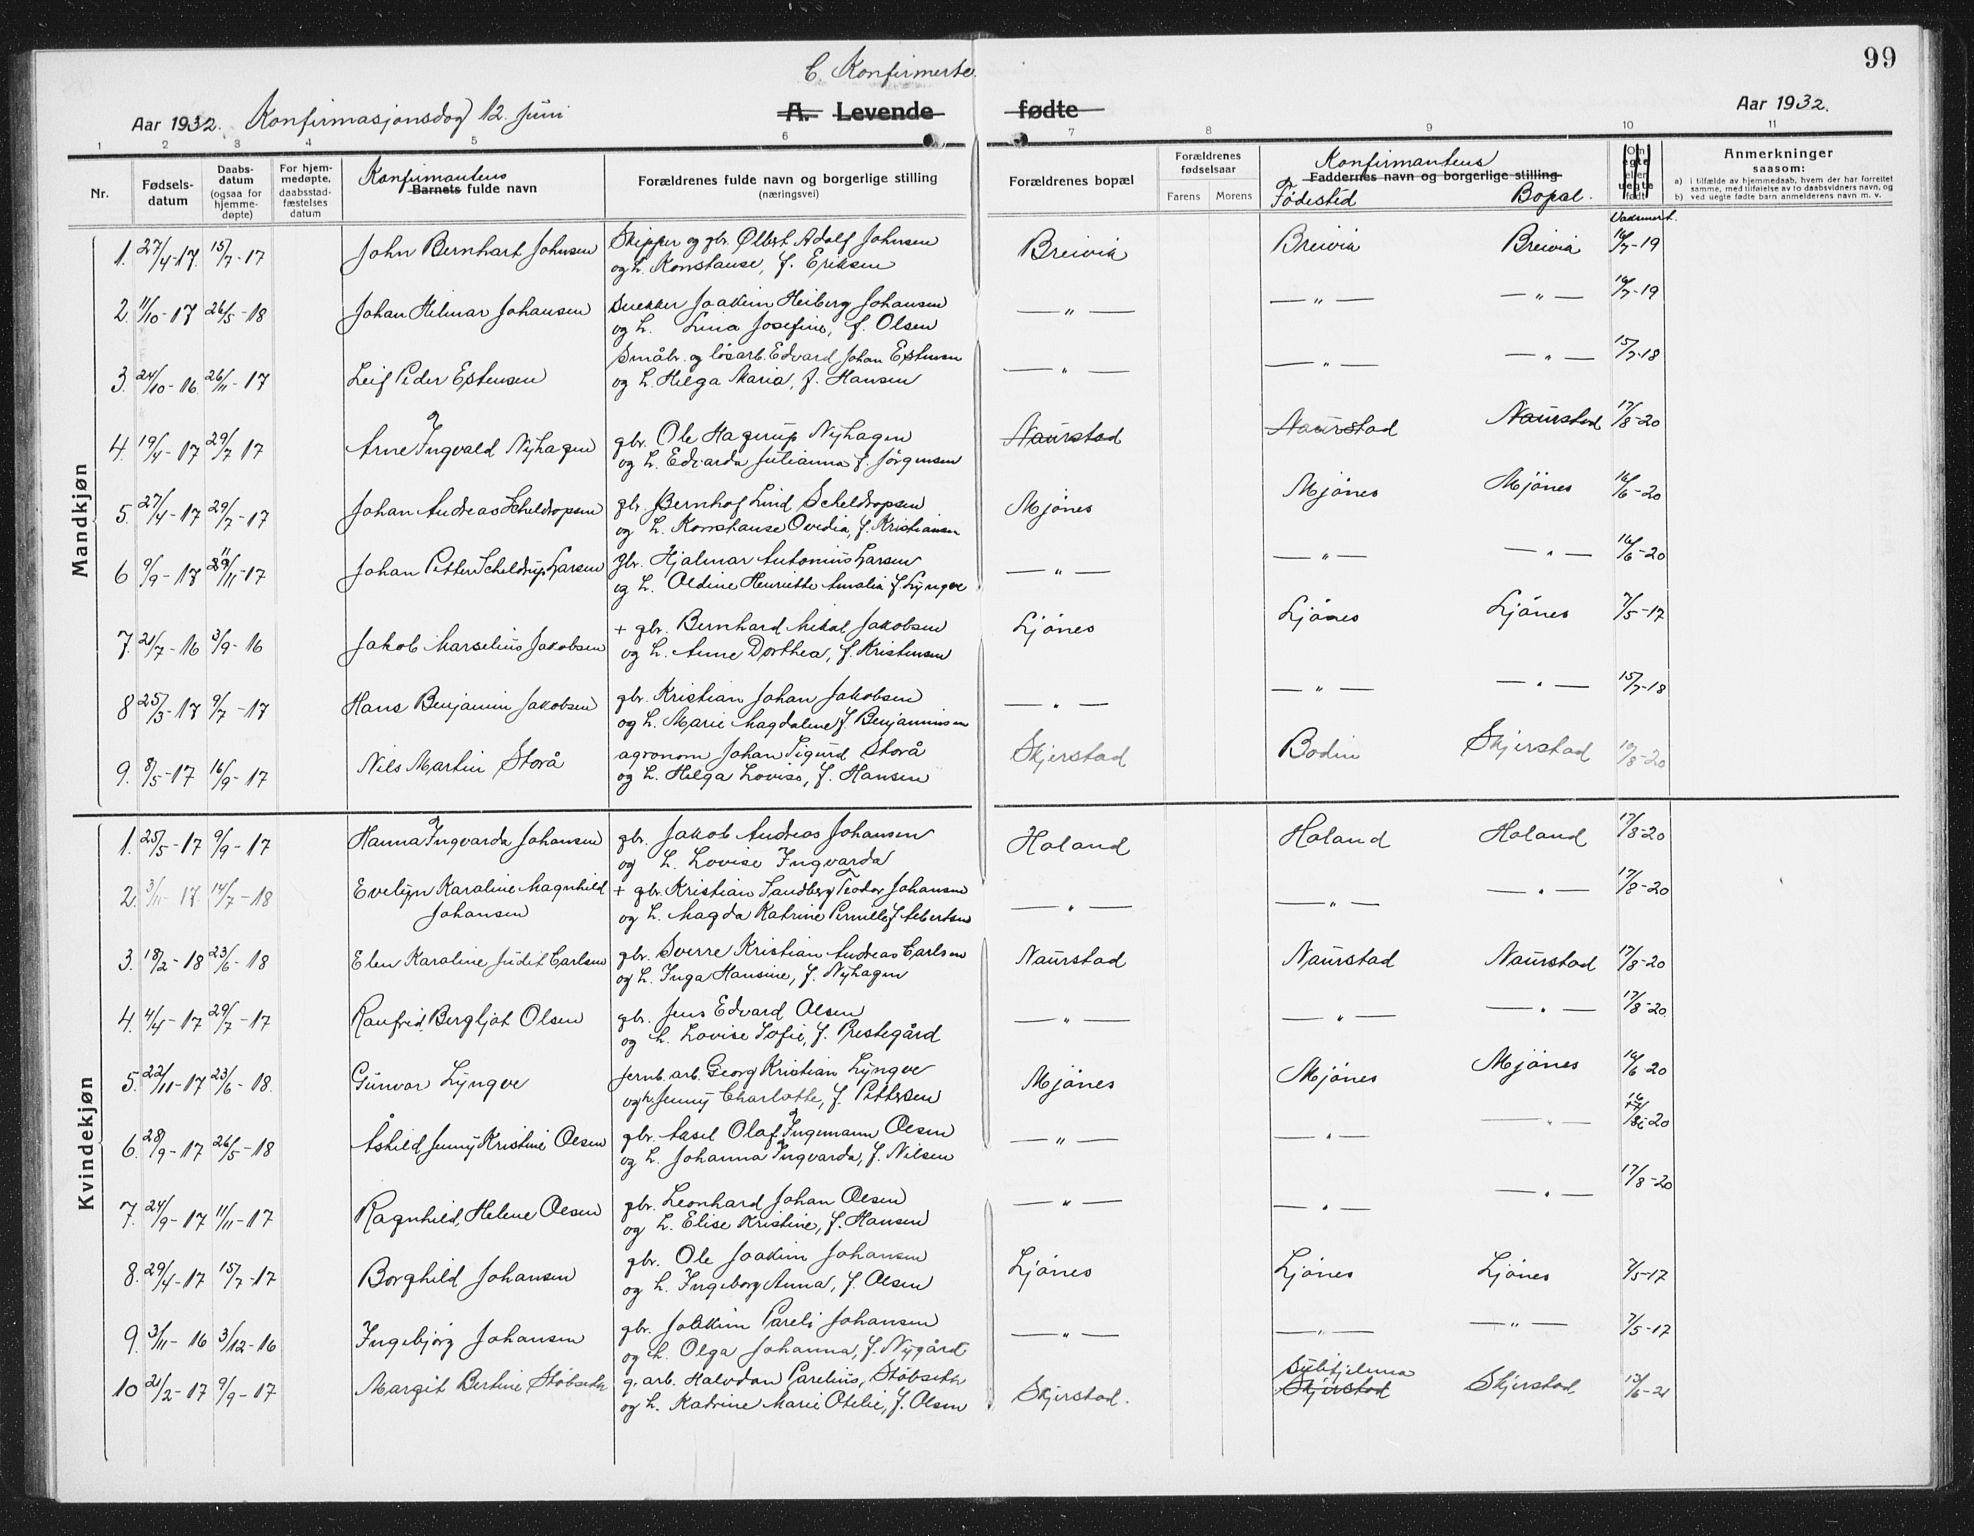 99
C. Konfirmerte.
Aar 1932. Konfirmasjonsdag 12. Juni
A. Levende fødte
Aar 1932.
1 2 3 4 5 6 7 8 9 10 11
Nr.
Fødsels-
datum
Daabs-
datum
(ogsaa for
hjemme-
døpte)
For hjem-
medøpte,
daabsstad-
fæstelses
datum
Konfirmantens
Barnets fulde navn
Forældrenes fulde navn og borgerlige stilling
(næringsvei)
Forældrenes bopæl
Forældrenes
fødselsaar
Farens Morens
Konfirmantens
Faddernes navn og borgerlige stilling
Fødested Bopæl.
Om
egte
eller
uegte
født
Anmerkninger
saasom:
a) i tilfælde av hjemmedaab, hvem der har forrettet
samme, med tilføielse av to daabsvidners navn, og
b) ved uegte fødte barn anmelderens navn m. v.
Mandkjøn
1. 27/4-17. 15/7-17 John Bernhart Johnsen Skipper og gbr. Ølbert Adolf Johnsen Breivia Breivia Breivia 16/7-19
og h. Konstanse, f. Eriksen
2. 11/10-17 26/5-18 Johan Helmar Johansen Snekker Joakim Heiberg Johansen — " — — " — — " — 16/7-19
og h. Lina Josefine, f. Olsen
3. 24/10-16 26/11-17 Leif Peder Estensen Småbr. og løsarb. Edvard Johan Estensen — " — — " — — " — 15/7-18
og h. Helga Maria, f. Hansen
4. 19/4-17 29/7 17 Arne Ingvald Nyhagen gbr. Ole Hagerup Nyhagen Naurstad Naurstad Naurstad 17/8-20
og h. Edvarda Julianna f. Jörgensen
5. 27/4-17 29/7-17 Johan Andreas Scheldropsen gbr. Bernhof Lind Scheldropsen Mjönes Mjönes Mjönes 16/6-20
og h. Konstanse Ovedia, f. Kristiansen
6 9/9-17 11/11-17 Johan Petter Scheldrup Larsen gbr. Hjalmar Antonius Larsen — " — — " — — " — 16/6-20
og h. Oldine Henriette Amalia f. Lyngve
7. 21/7-16 3/9-16 Jakob Marselius Jakobsen + gbr. Bernhard Mikal Jakobsen Ljönes Ljönes Ljönes 7/5-17
og h. Anne Dorthea, f. Kristensen
8 25/3-17 9/7-17 Hans Benjamin Jakobsen gbr. Kristian Johan Jakobsen — " — — " — — " — 15/7-18
og h. Marie Magdalene f. Benjaminsen
9. 8/5-17 16/9-17 Nils Martin Storå agronom Johan Sigurd Storå Skjerstad Bodin Skjerstad 19/8-20
og h. Helga Lovise, f. Hansen
Kvindekjøn
1. 25/5-17 9/9-17 Hanna Ingvarda Johansen gbr. Jakob Andreas Johansen Holand Holand Holand 17/8-20
og h. Lovise Ingvarda
2. 3/11-17 14/7-18 Evelyn Karoline Magnhild + gbr. Kristian Sandberg Teodor Johansen — " — — " — — " — 17/8-20
Johansen og h. Magda Katrine Pernille f. Albertsen
3. 18/2-18 23/6-18 Elen Karoline Judit Carlsen gbr. Sverre Kristian Andreas Carlsen Naurstad Naurstad Naurstad 17/8-20
og h. Inga Hansine, f. Nyhagen
4. 4/4-17 29/7-17 Ranfrid Bergljot Olsen gbr. Jens Edvard Olsen — " — — " — — " — 17/8-20
og h. Lovise Sofie, f. Prestegård
5. 22/11-17 23/6-18. Gunvor Lyngve Jernb. arb. Georg Kristian Lyngve Mjönes Mjönes Mjönes 16/6-20
og h. Jenny Charlotte, f. Pettersen
6. 28/9-17 26/5-18 Åshild Jenny Kristine Olsen gbr. Aasel Olaf Ingemann Olsen — " — — " — — " — 16/6-20
og h. Johanna Ingvarda, f. Nilsen
7. 24/9-17 11/11-17 Ragnhild Helene Olsen gbr. Leonhard Johan Olsen — " — — " — — " — 17/8-20
og h. Elise Kristine, f. Hansen
8. 29/4-17 15/7-17 Borghild Johansen gbr. Ole Joakim Johansen Ljönes Ljönes Ljönes 7/5-17
og h. Ingeborg Anna, f. Olsen
9. 3/11-16 3/12-16 Ingebjørg Johansen gbr. Joakim Pareli Johansen — " — — " — — " — 7/5-17
og h. Olga Johanna, f. Nygård
10 21/2-17 9/9-17 Margit Bertine Støbseth g. arb. Halvdan Parelius Støbseth Skjerstad. Sulitjelma Skjerstad Skjerstad 13/6-21
og h. Katrine Marie Otelie, f. Olsen